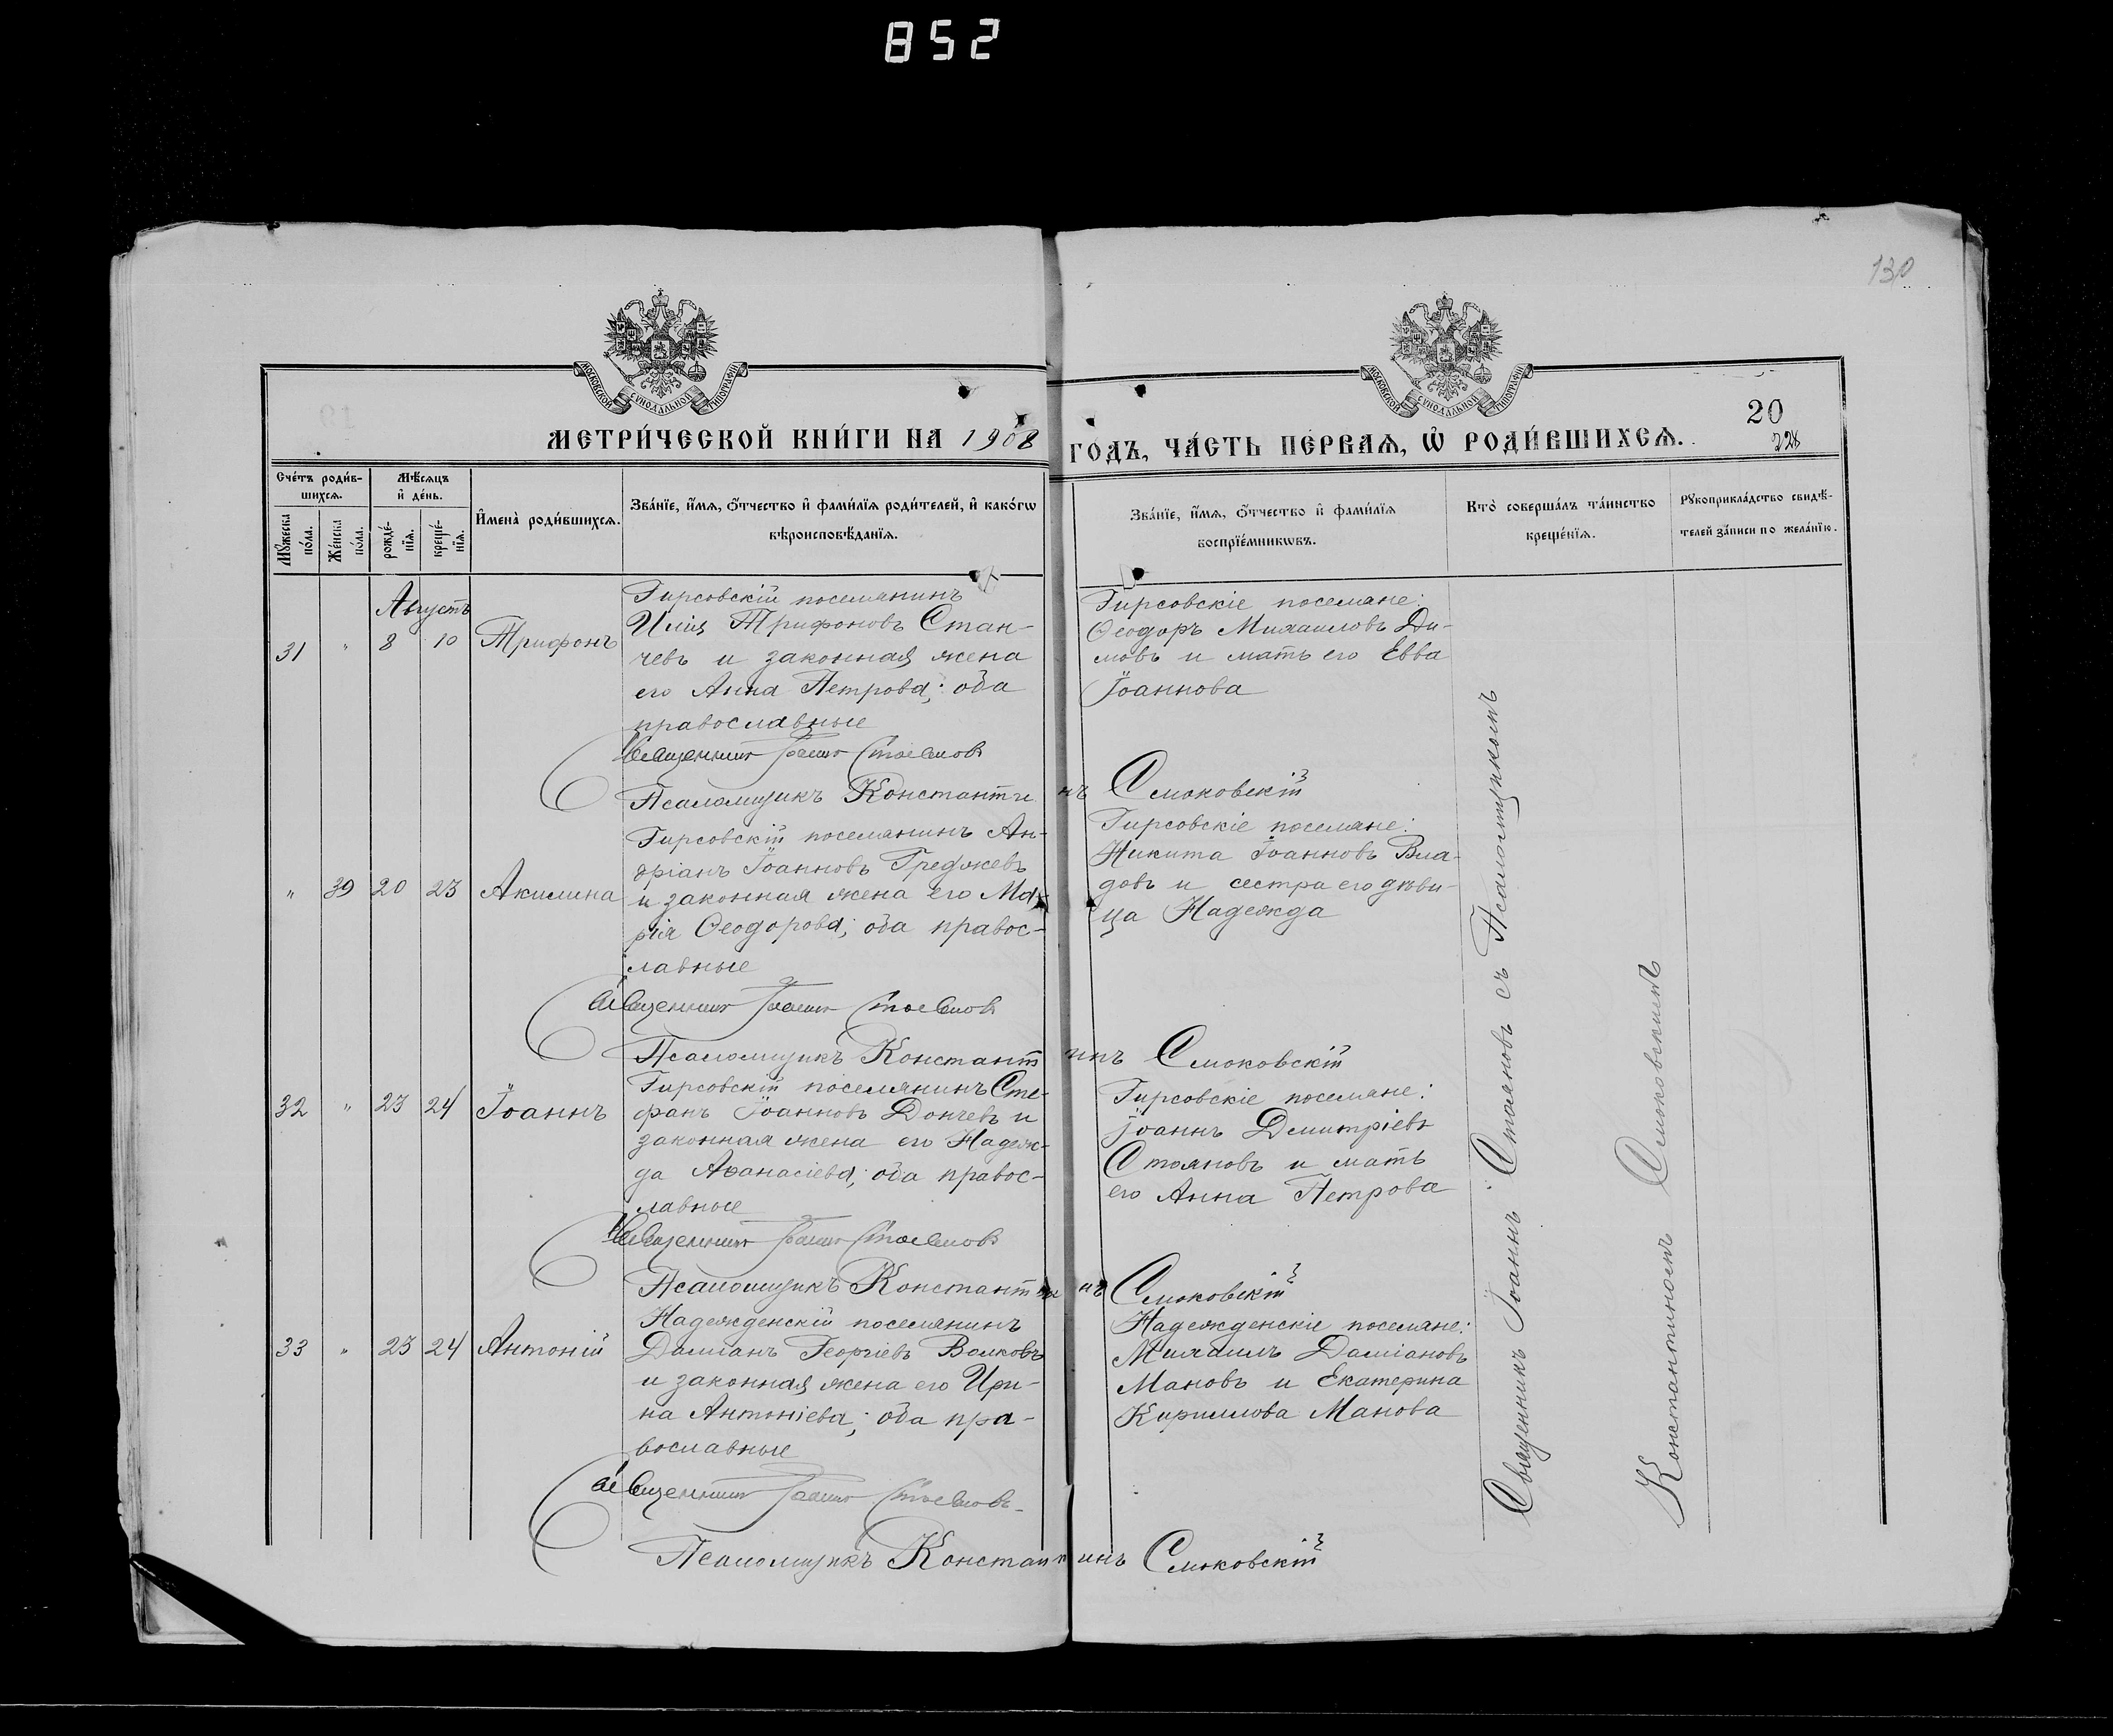 852
130
МОСКОВСКОЙ СѴНОДАЛЬНОЙ ТИПОГРАФІИ
МОСКОВСКОЙ СѴНОДАЛЬНОЙ ТИПОГРАФІИ
20
228
МЕТРИ́ЧЕСКОЙ КНИ́ГИ НА 1908 ГО́ДЪ, ЧА́СТЬ ПЕ́РВАѦ, Ѡ҆ РОДИ́ВШИХСѦ.
Сче́тъ роди́в-
шихсѧ.
Мѣ́сѧцъ
и҆ де́нь.
Мꙋ́жеска
по́ла.
Же́нска
по́ла.
рожде́-
нїѧ.
креще́-
нїѧ.
И҆мена̀ роди́вшихсѧ.
Зва́нїе, и҆́мѧ, ѻ҆́тчество и҆ фами́лїѧ роди́телей, и҆ како́гѡ
вѣроисповѣ́данїѧ.
Зва́нїе, и҆́мѧ, ѻ҆́тчество и҆ фами́лїѧ
воспрїе́мникѡвъ.
Кто̀ соверша́лъ та́инство
креще́нїѧ.
Рꙋкоприкла́дство свидѣ́-
телей за́писи по жела́нїю.
Августъ
31 " 8 10 Трифонъ
Гирсовскій поселянинъ
Илія Трифоновъ Стан-
чевъ и законная жена
его Анна Петрова; оба
православные
Гирсовскіе поселяне:
Ѳеодоръ Михаиловъ Ди-
мовъ и мать его Евва
Іоаннова
Священникъ Іоаннъ Стояновъ
Псаломщикъ Константинъ Смоковскій
" 39 20 23 Акилина
Гирсовскій поселянинъ Ан-
дріанъ Іоанновъ Греджевъ
и законная жена его Ма-
рія Ѳеодорова; оба правос-
лавные
Гирсовскіе поселяне:
Никита Іоанновъ Вла-
довъ и сестра его дѣви-
ца Надежда
Священникъ Іоаннъ Стояновъ
Псаломщикъ Константинъ Смоковскій
32 " 23 24 Іоаннъ
Гирсовскій поселянинъ Сте-
фанъ Іоанновъ Дончевъ и
законная жена его Надеж-
да Аѳанасіева; оба правос-
лавные
Гирсовскіе поселяне:
Іоаннъ Димитріевъ
Стояновъ и мать
его Анна Петрова
Священникъ Іоаннъ Стояновъ
Псаломщикъ Константинъ Смоковскій
33 " 23 24 Антоній
Надежденскій поселянинъ
Даміанъ Георгіевъ Волковъ
и законная жена его Ири-
на Антоніева; оба пра-
вославные
Надежденскіе поселяне:
Михаилъ Даміановъ
Мановъ и Екатерина
Кириллова Манова
Священникъ Іоаннъ Стояновъ
Псаломщикъ Константинъ Смоковскій
Священникъ Іоаннъ Стояновъ съ Псаломщикомъ
Константиномъ Смоковскимъ